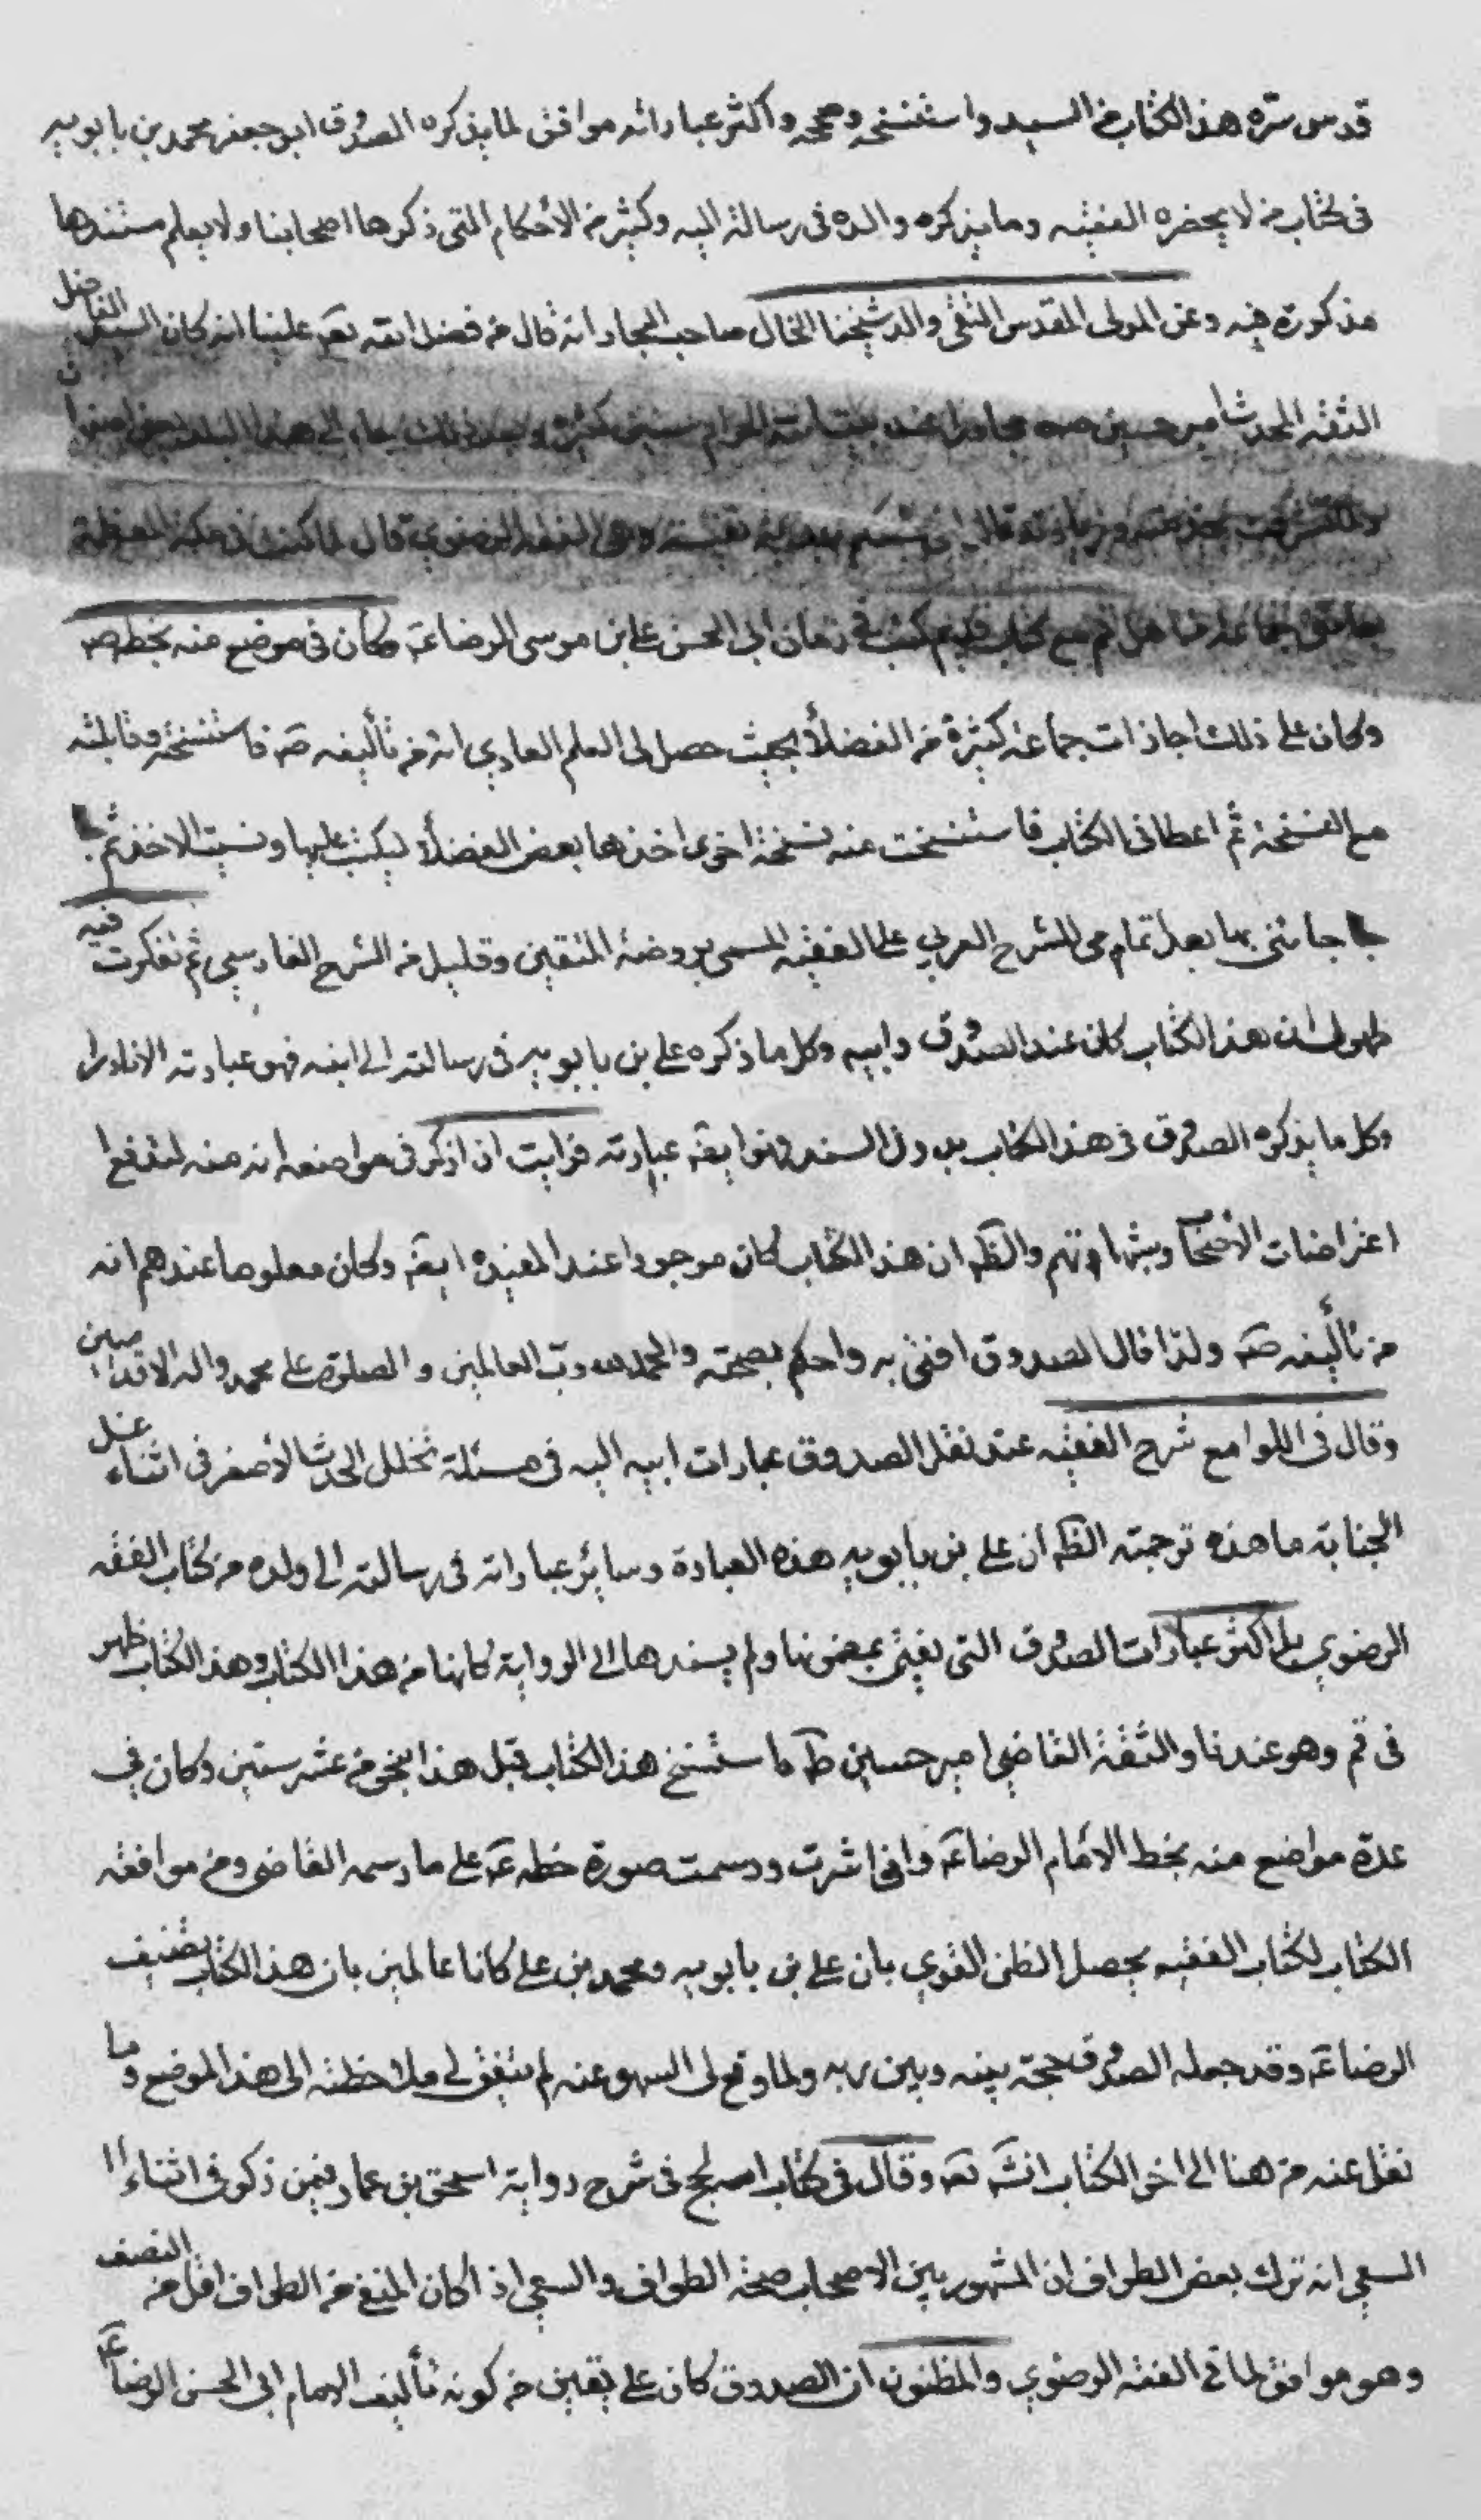 قدس سره هذا الكتاب من السيد واستنسخه وصححه واكثر عباراته موافق لما يذكره الصدوق ابو جعفر محمد بن بابويه
فى كتاب من لا يحضره الفقيه وما يذكره والده فى رسالته اليه وكثير من الأحكام التى ذكرها اصحابنا ولا يعلم مستندها
مذكورة فيه وعن المولى المقدس التقى والد شيخنا الخال صاحب البحار انه قال من فضل الله تعم علينا انه كان السيد الفاضل
الثقة المحدث امير حسين مجاورا عند بيت الله الحرام سنين كثيرة وبعد ذلك جاء الى هذا البلد
قال انى نفيسة وهى الفقه الرضوي قال لما كنت فى مكة المعظمة
جماعة من اهل قم مع كتاب قديم كتب فى زمان ابى الحسن على بن موسى الرضا عم وكان فى موضع منه بخطه ص
وكان على ذلك اجازات جماعة كثيرة من الفضلأ بحيث حصل لى العلم العادي انه من تأليفه صم فاستنسخته وقابلته
مع النسخة ثم اعطانى الكتاب فاستنسخت منه نسخة اخرى اخذها بعض الفضلأ ليكتب عليها ونسيت الاخذ ثم
جائنى بها بعد تمامى للشرح العربي على الفقيه المسمى بروضة المتقين وقليل من الشرح الفارسي ثم تفكرت فيه
ظهر لى ان هذا الكتاب كان عند الصدوق وابيه وكل ما ذكره على بن بابويه فى رسالته الى ابنه فهو عبارته الا نادرا
وكل ما يذكره الصدوق فى هذا الكتاب بدون السند فهو ايضه عبارته فرايت ان اذكر فى مواضعه انه منه لتدفع
اعتراضات الأصحا وشبهاتهم والظم ان هذا الكتاب كان موجودا عند المفيد ره ايضه وكان معلوما عندهم انه
من تأليفه صم ولذا قال الصدوق افتى به واحكم بصحته والحمد لله رب العالمين والصلوة على محمد واله الاقدسين
وقال فى اللوامع شرح الفقيه عند نقل الصدوق عبارات ابيه اليه فى مسئلة تخلل الحدث الأصغر فى اثناء غسل
الجنابة ما هذه ترجمته الظم ان على بن بابويه هذه العبارة وسائر عباراته فى رسالته الى ولده من كتاب الفقه
الرضوي بل اكثر عبارات الصدوق التى يفتى بمضمونها ولم يسندها الى الرواية كانها من هذا الكتاب وهذا الكتاب ظهر
فى قم وهو عندنا والثقة القاضى امير حسين طم استنسخ هذا الكتاب قبل هذا بنحو من عشر سنين وكان في
عدة مواضع منه بخط الامام الرضا عم وانى اشرت ورسمت صورة خطه عم على ما رسمه القاضى ومن موافقة
الكتاب لكتاب الفقيه يحصل الظن القوي بان على بن بابويه ومحمد بن على كانا عالمين بان هذا الكتاب تصنيف
الرضا عم وقد جعله الصدوق حجة بينه وبين ربه ولما وقع لى السهو عنه لم يتفق لى ملاحظته الى هذا الموضع وما
نقل عنه من هنا الى اخر الكتاب انشم تعم وقال فى كتاب الحج فى شرح رواية اسحق بن عمار فيمن ذكر فى اثناء
السعي انه ترك بعض الطواف ان المشهور بين الاصحاب صحة الطواف والسعي اذا كان المنع من الطواف اقل من النصف
وهو موافق لما فى الفقه الرضوي والمظنون ان الصدوق كان على يقين من كونه تأليف الامام ابى الحسن الرضا عم